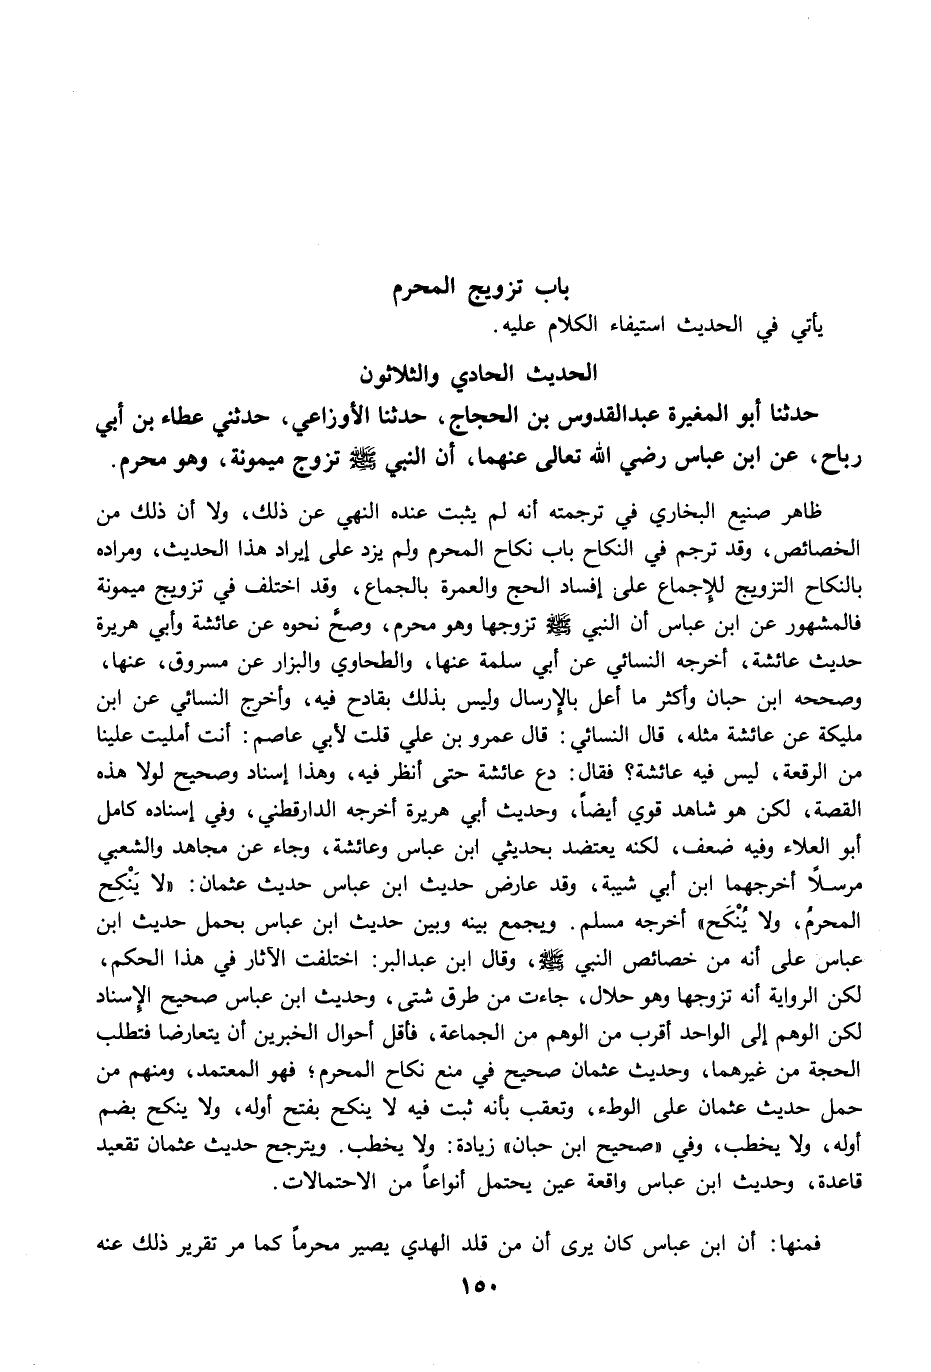 باب تزويج المحرم
يأتي في الحديث استيفاء الكلام عليه.
الحديث الحادي والثلاثون
حدثنا أبو المغيرة عبدالقدوس بن الحجاج، حدثنا الأوزاعي، حدثني عطاء بن أبي
رباح، عن ابن عباس رضي الله تعالى عنهما، أن النبي ﷺ تزوج ميمونة، وهو محرم.
ظاهر صنيع البخاري في ترجمته أنه لم يثبت عنده النهي عن ذلك، ولا أن ذلك من
الخصائص، وقد ترجم في النكاح باب نكاح المحرم ولم يزد على إيراد هذا الحديث، ومراده
بالنكاح التزويج للإجماع على إفساد الحج والعمرة بالجماع، وقد اختلف في تزويج ميمونة
فالمشهور عن ابن عباس أن النبي ﷺ تزوجها وهو محرم، وصحَّ نحوه عن عائشة وأبي هريرة
حديث عائشة، أخرجه النسائي عن أبي سلمة عنها، والطحاوي والبزار عن مسروق، عنها،
وصححه ابن حبان وأكثر ما أعل بالإرسال وليس بذلك بقادح فيه، وأخرج النسائي عن ابن
مليكة عن عائشة مثله، قال النسائي: قال عمرو بن علي قلت لأبي عاصم: أنت أمليت علينا
من الرقعة، ليس فيه عائشة؟ فقال: دع عائشة حتى أنظر فيه، وهذا إسناد وصحيح لولا هذه
القصة، لكن هو شاهد قوي أيضاً، وحديث أبي هريرة أخرجه الدارقطني، وفي إسناده كامل
أبو العلاء وفيه ضعف، لكنه يعتضد بحديثي ابن عباس وعائشة، وجاء عن مجاهد والشعبي
مرسلاً أخرجهما ابن أبي شيبة، وقد عارض حديث ابن عباس حديث عثمان: «لا يَنْكِح
المحرمُ، ولا يُنْكَح» أخرجه مسلم. ويجمع بينه وبين حديث ابن عباس بحمل حديث ابن
عباس على أنه من خصائص النبي ﷺ، وقال ابن عبدالبر: اختلفت الآثار في هذا الحكم،
لكن الرواية أنه تزوجها وهو حلال، جاءت من طرق شتى، وحديث ابن عباس صحيح الإسناد
لكن الوهم إلى الواحد أقرب من الوهم من الجماعة، فأقل أحوال الخبرين أن يتعارضا فتطلب
الحجة من غيرهما، وحديث عثمان صحيح في منع نكاح المحرم؛ فهو المعتمد، ومنهم من
حمل حديث عثمان على الوطء، وتعقب بأنه ثبت فيه لا ينكح بفتح أوله، ولا ينكح بضم
أوله، ولا يخطب، وفي «صحيح ابن حبان» زيادة: ولا يخطب. ويترجح حديث عثمان تقعيد
قاعدة، وحديث ابن عباس واقعة عين يحتمل أنواعاً من الاحتمالات.
فمنها: أن ابن عباس كان يرى أن من قلد الهدي يصير محرماً كما مر تقرير ذلك عنه
١٥٠